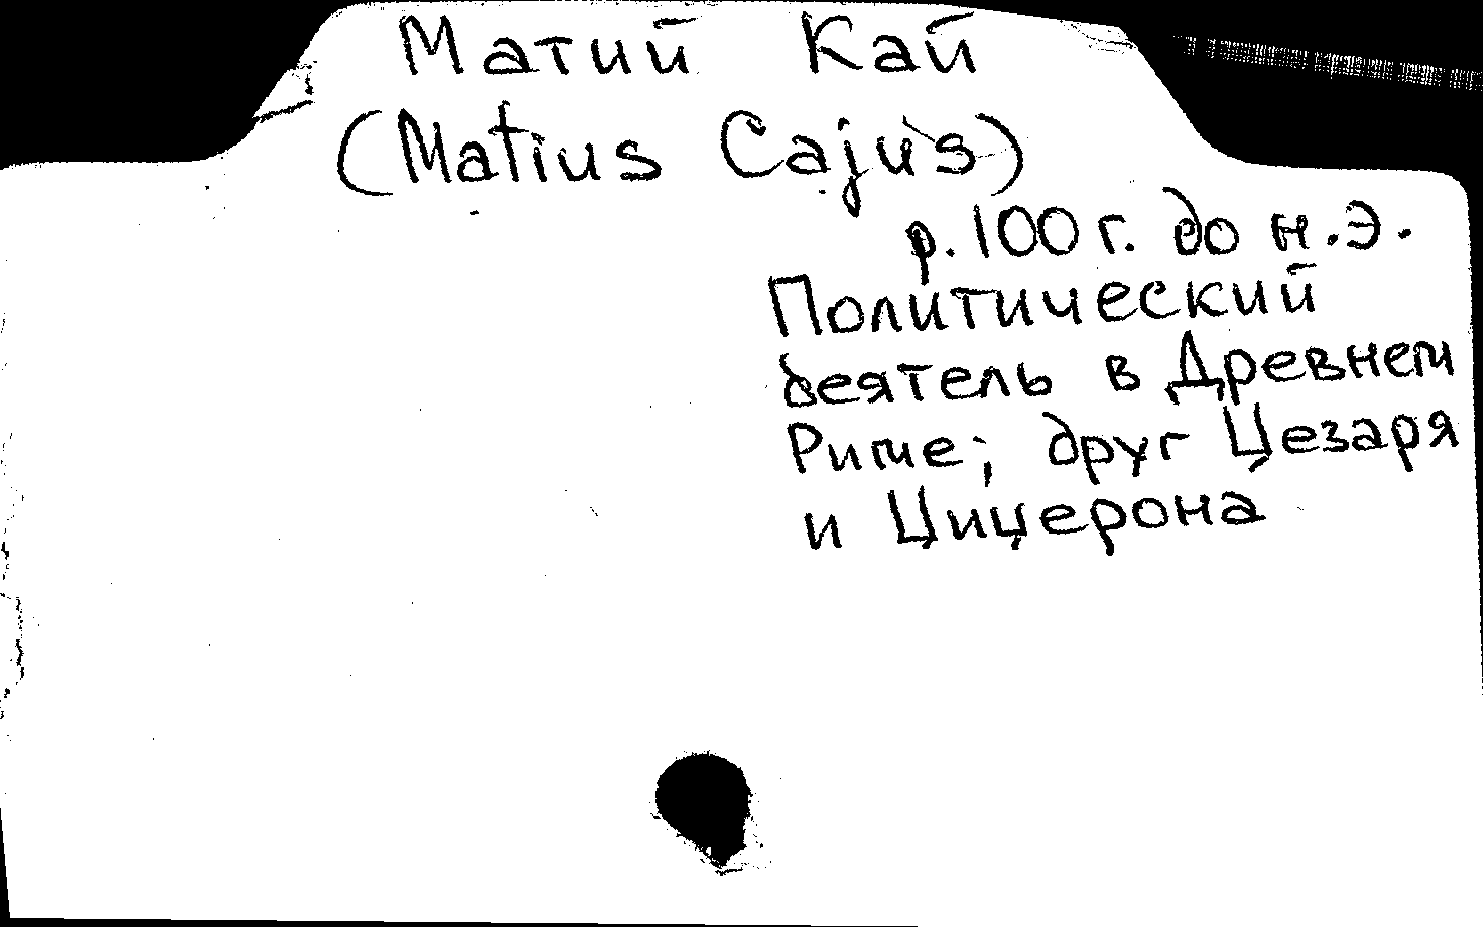 Матий Кай
(Matius Cajus)
р. 100 г. до н.э.
Политический
деятель в Древнем
Риме; друг Цезаря
и Цицерона